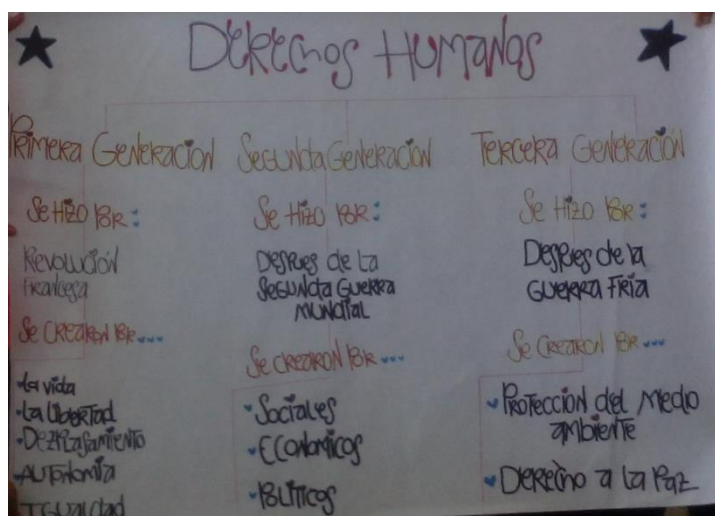 Derechos Humanos
Primera Generacion
Se Hizo Por:
Revolución
Francesa
Se Crearon Por...
-La vida
-La Libertad
-Dezplasamiento
-Autonomía
-Igualdad
Segunda Generacion
Se Hizo Por:
Despues de La
Segunda Guerra
Mundial
Se crearon Por...
-Sociales
-Economicos
-Políticos
Tercera Generación
Se Hizo Por:
Despues de la
Guerra Fria
Se Crearon Por...
-Protección del Medio
ambiente
-Derecho a La Paz